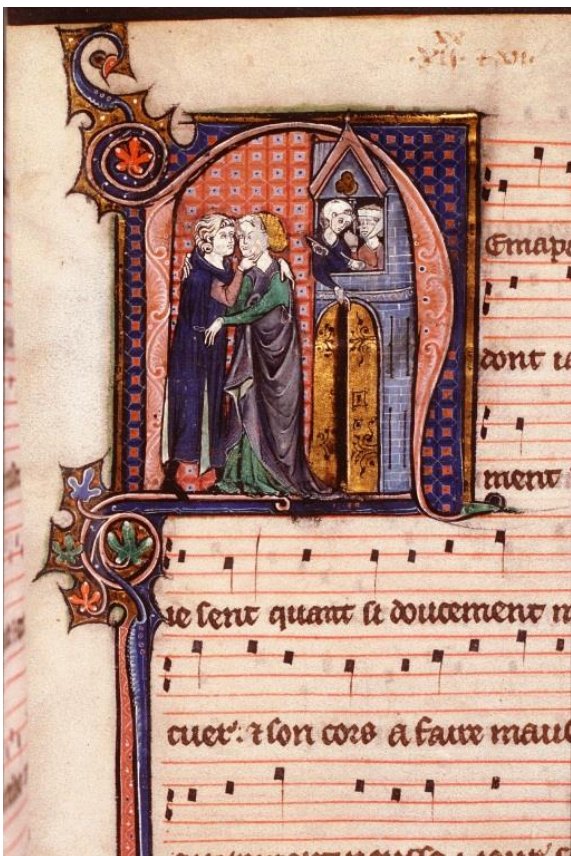 NEmapa
dont ia
ment
ie sent quant si doucement
cuer. ⁊ son cors a faire